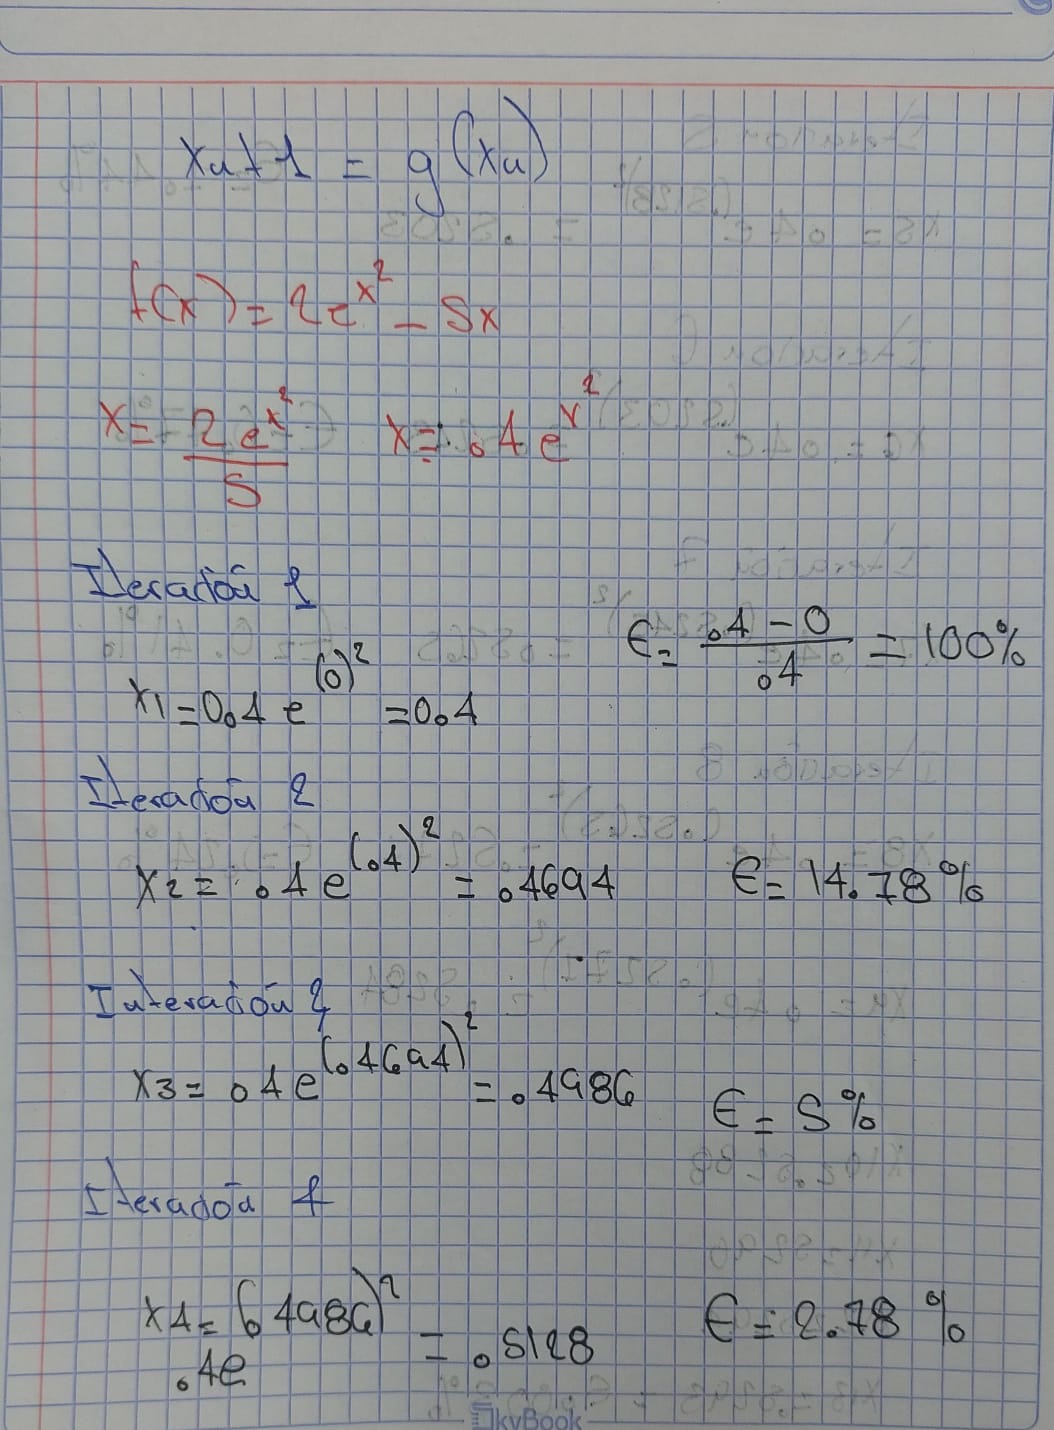 Xn+1 = g(xn)
f(x) = 2e^x² - 5x
x = 2e^x² / 5   x = .4e^x²
Iteración 1
x1 = 0.4 e^(0)² = 0.4   ϵ = .4 - 0 / .4 = 100%
Iteración 2
x2 = .4e^(.4)² = .4694   ϵ = 14.78%
Interación 3
x3 = .4e^(.4694)² = .4986   ϵ = 5%
Iteración 4
x4 = .4e^(.4986)² = .5128   ϵ = 2.78%
SkyBook